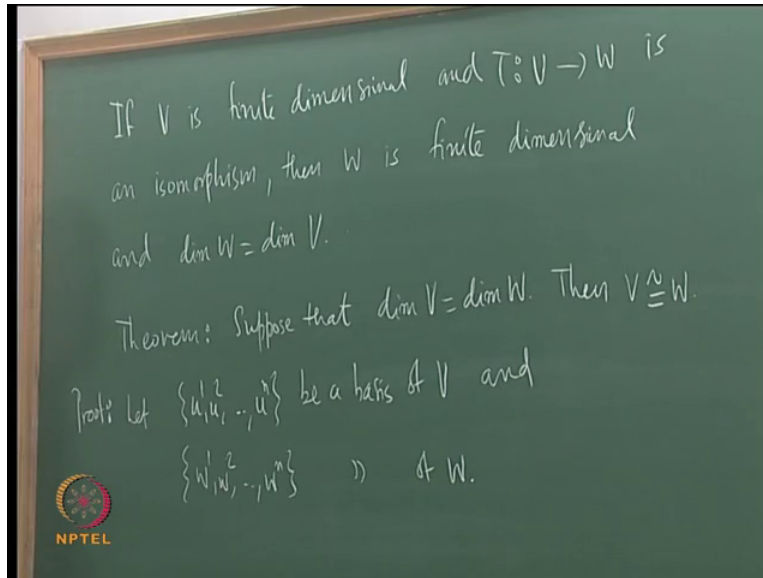 If V is finite dimensional and T: V → W is
an isomorphism, then W is finite dimensional
and dim W = dim V.
Theorem: Suppose that dim V = dim W. Then V ≅ W.
Proof: Let {u¹, u², .., uⁿ} be a basis of V and
{w¹, w², .., wⁿ} " of W.
NPTEL